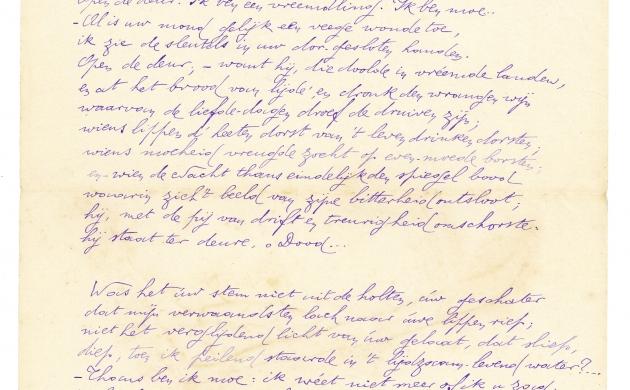 Open de deur. Ik ben een vreemdling. Ik ben moe..
- Al is uw mond gelijk een veege wonde toe,
ik zie de sleutels in uw dor-gesloten handen.
Open de deur; - want hij, die doolde in vréemde landen,
en at het brood van lijde' en dronk den wrangen wijn
waarvan de liefde-dagen droef de druiven zijn;
wiens lippen d' heeten dorst van 't leven drinken dorsten;
wiens moeheid vreugde zocht op even-moede borsten;
en - wien de Nacht thans eindelijk den spiegel bood
waarin zich 't beeld van zijne bitterheid ontsloot;
hij, met de pij van drift en treurigheid omschorste.
hij staat ter deure, o Dood...
Was het úw stem niet uit de holten, úw geschater
dat mijn verwaandsten lach naar úwe lippen riep;
niet het verglijdend licht van úw gelaat, dat sliep,
diep, toen ik peilend staarde in 't lijdzaam-levend water?...
- Thans ben ik moe: ik wéet niet meer of ik u